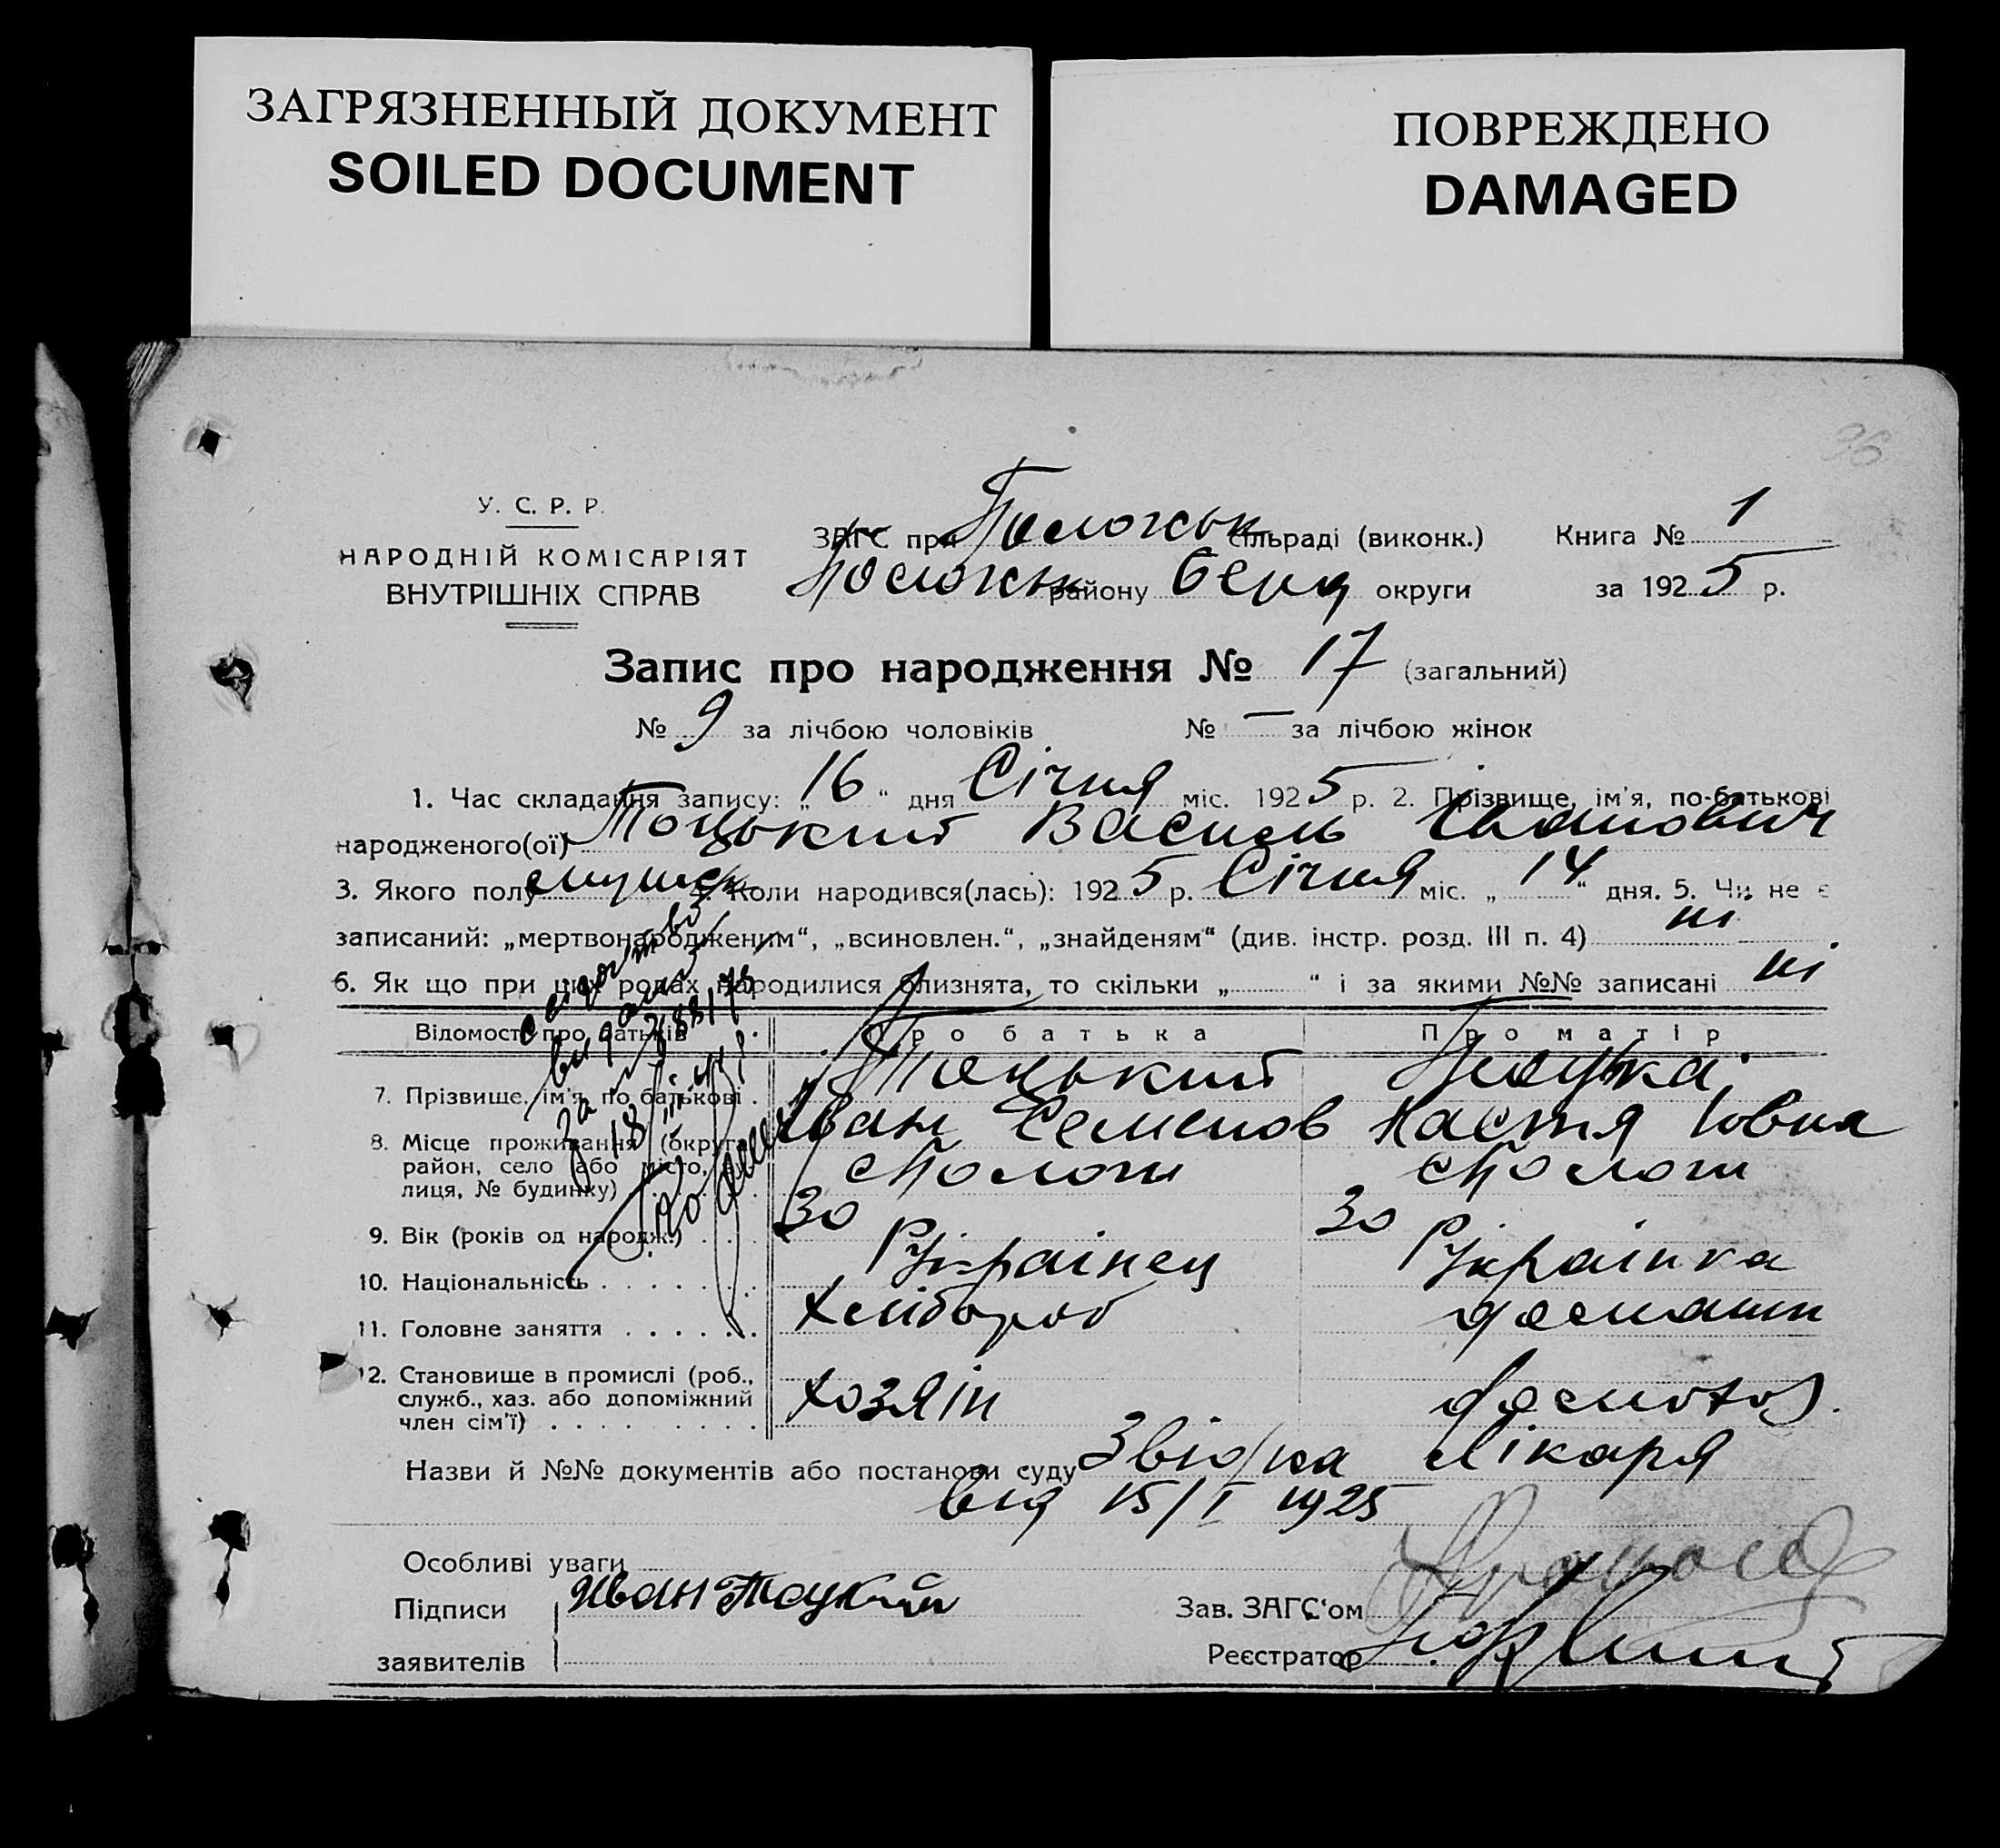 ЗАГРЯЗНЕННЫЙ ДОКУМЕНТ
SOILED DOCUMENT
ПОВРЕЖДЕНО
DAMAGED
96
У. С. Р. Р.
НАРОДНІЙ КОМІСАРІЯТ
ВНУТРІШНІХ СПРАВ
ЗАГС при Положськ сільраді (виконк.)
району Берд округи
Книга № 1
за 1925 р.
Запис про народження № 17 (загальний)
№ 9 за лічбою чоловіків № — за лічбою жінок
1. Час складання запису: „16“ дня Січня міс. 1925 р. 2. Прізвище, ім'я, по-батькові
народженого(ої) Тоцький Василь Іванович
3. Якого полу мушск 4. Коли народився(лась): 1925 р. Січня міс. „14“ дня. 5. Чи не є
записаний: „мертвонародженим“, „всиновлен.“, „знайденям“ (див. інстр. розд. III п. 4) ні
6. Як що при цих родах народилися близнята, то скільки „ “ і за якими №№ записані ні
Відомості про батьків Про батька Про матір
7. Прізвище, ім'я, по батькові . Тоцький Тоцька
Іван Семенов Настя Іовна
8. Місце проживання (округа,
район, село або місто,
лиця, № будинку) с Пологи с Пологи
9. Вік (років од народж.) . . . . 30 30
10. Національність . . . . . . . Українец Українка
11. Головне заняття . . . . . . Хлібороб домашн
12. Становище в промислі (роб.,
служб., хаз. або допоміжний
член сім'ї) . . . . . . . . . хозяін домохоз.
Назви й №№ документів або постанови суду Звідка Лікаря
від 15/I 1925
Особливі уваги
Підписи Иван Тоцкий Зав. ЗАГС'ом
заявителів Реєстратор